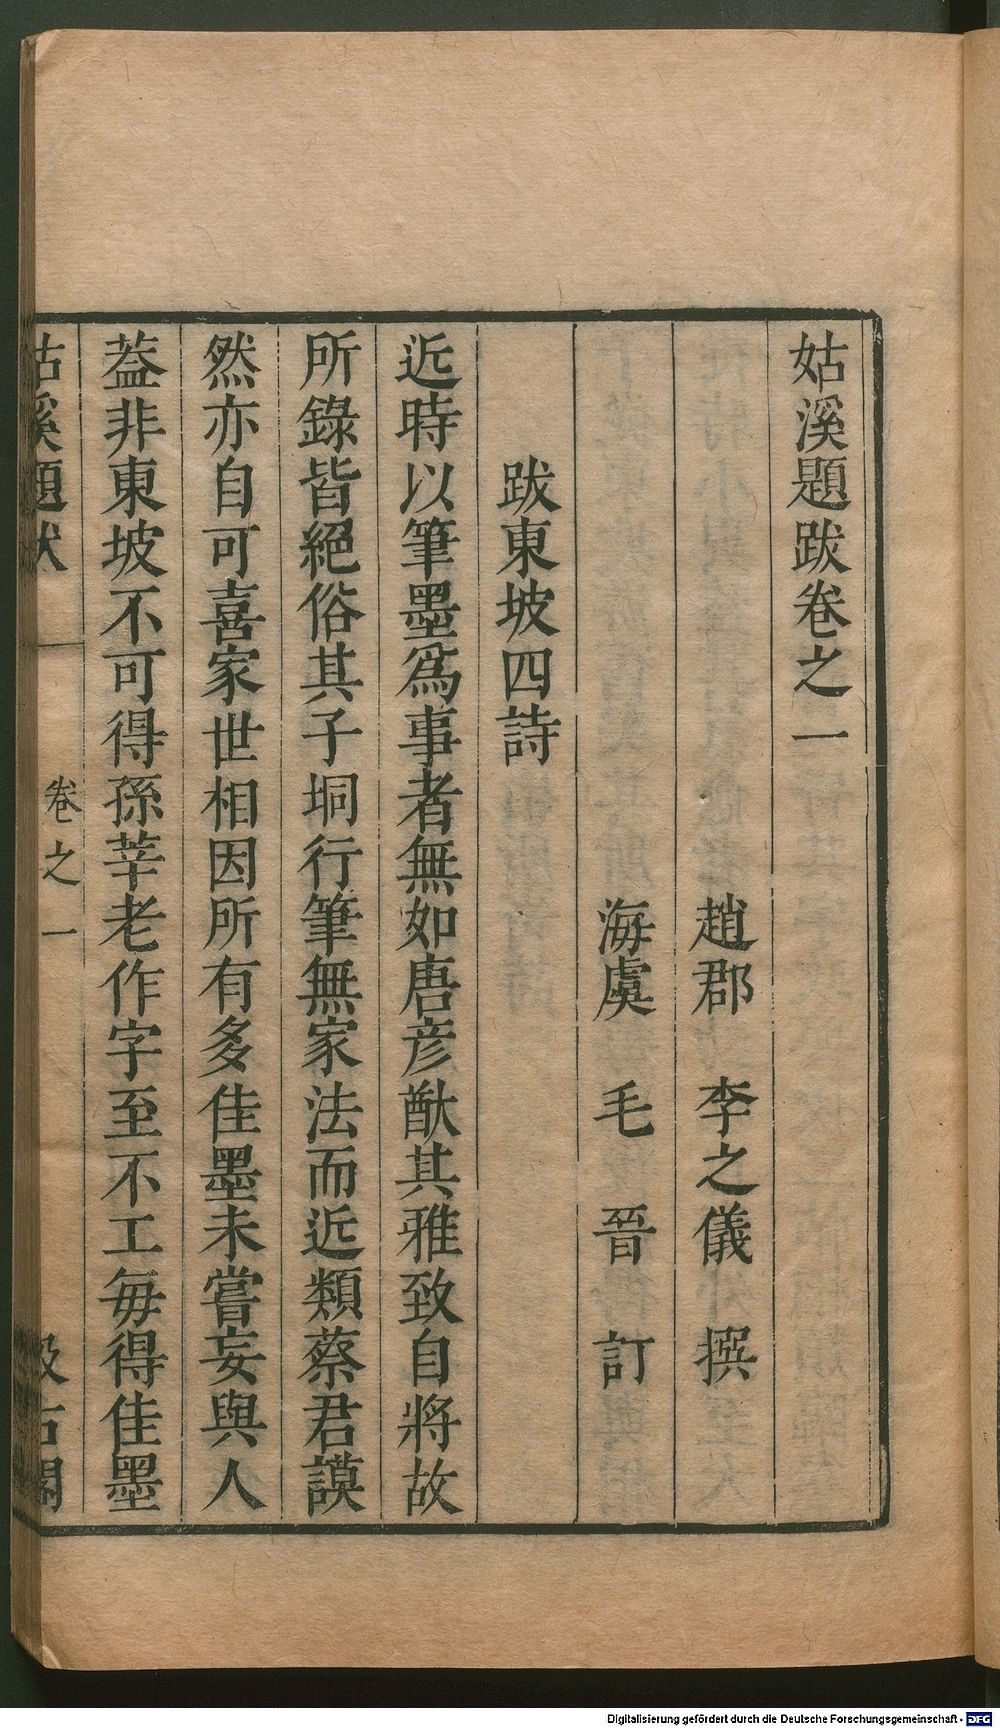 姑溪題跋卷之一
趙郡　李之儀　撰
海虞　毛　晉　訂
跋東坡四詩
近時以筆墨爲事者無如唐彦猷其雅致自將故
所錄皆絕俗其子坰行筆無家法而近類蔡君謨
然亦自可喜家世相因所有多佳墨未嘗妄與人
葢非東坡不可得孫莘老作字至不工每得佳墨
姑溪題跋　卷之一　汲古閣
Digitalisierung gefördert durch die Deutsche Forschungsgemeinschaft - DFG